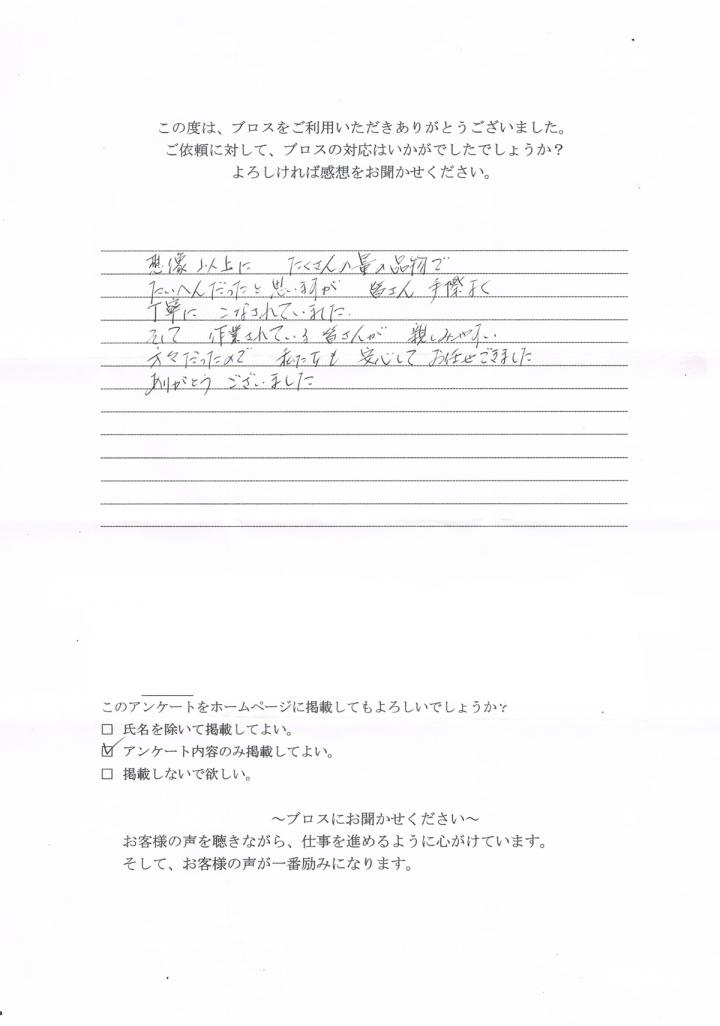 この度は、ブロスをご利用いただきありがとうございました。
ご依頼に対して、ブロスの対応はいかがでしたでしょうか？
よろしければ感想をお聞かせください。
想像以上に たくさんの量の品物で
たいへんだったと思いますが 皆さん 手際よく
丁寧に こなされていました.
そして 作業されている皆さんが 親しみやすい
方々だったので 私たちも 安心して お任せできました
ありがとう ございました
このアンケートをホームページに掲載してもよろしいでしょうか？
□ 氏名を除いて掲載してよい。
☑ アンケート内容のみ掲載してよい。
□ 掲載しないで欲しい。
～ブロスにお聞かせください～
お客様の声を聴きながら、仕事を進めるように心がけています。
そして、お客様の声が一番励みになります。